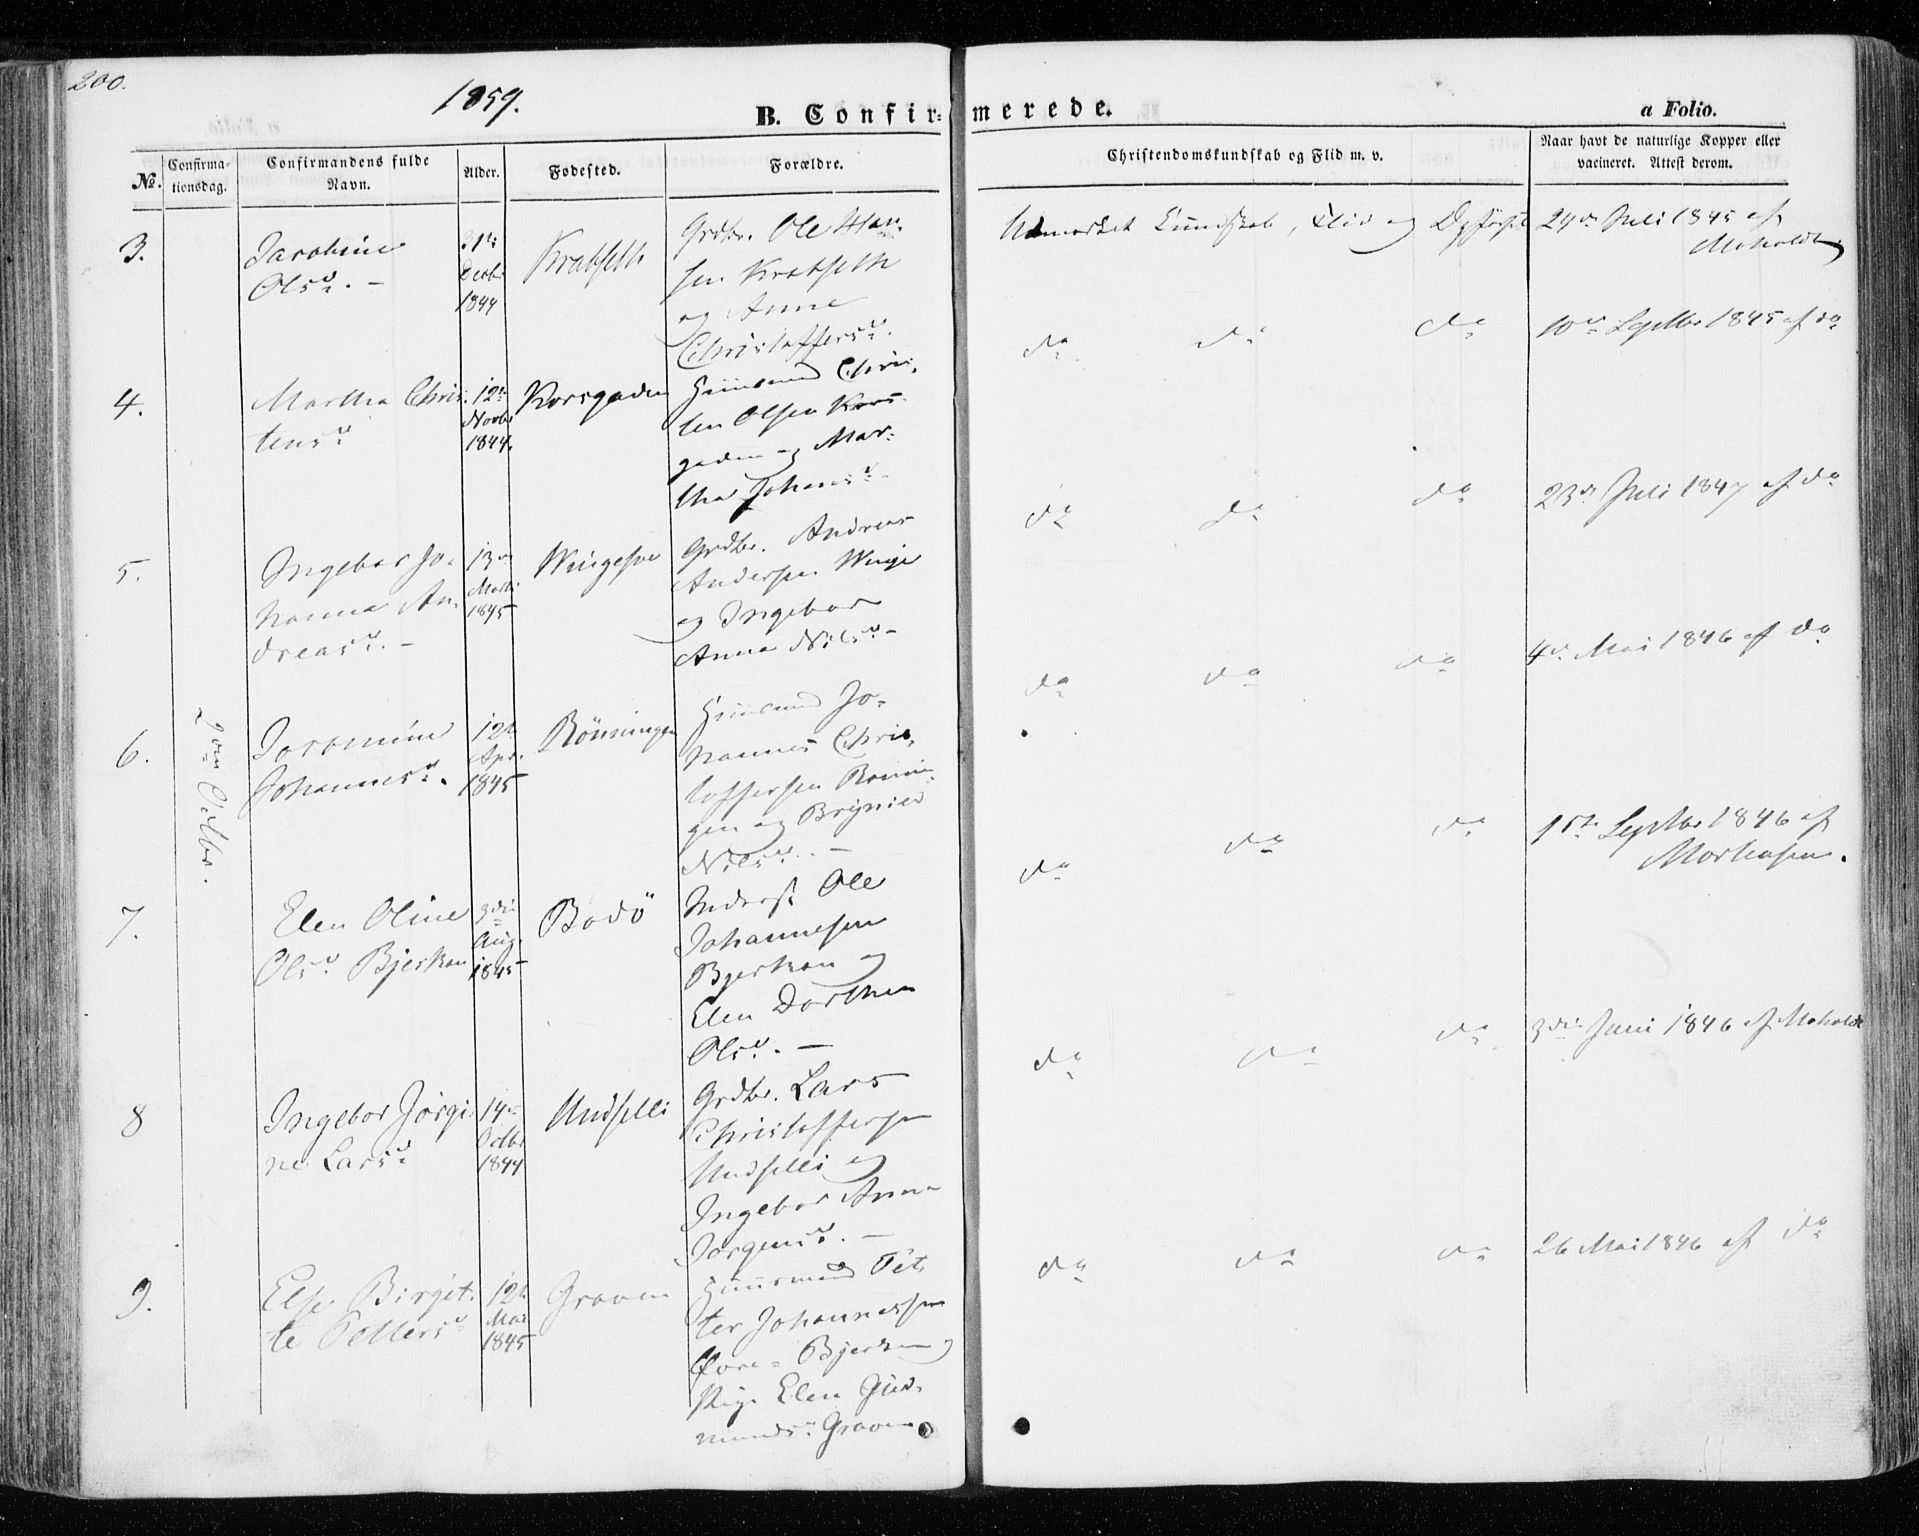 200.
1859.
B. Confir-merede.
a Folio.
No.
Confirma-
tionsdag.
Confirmandens fulde
Navn.
Alder.
Fødested.
Forældre.
Christendomskundskab og Flid m. v.
Naar havt de naturlige Kopper eller
vacineret. Attest derom.
2den Octbr.
3.
Jacobine
Olsd. -
31te
Decbr
1844
Krabseth
Grdbr. Ole Han-
sen Krabseth
og Anne
Christoffersd.
Udmærket Kundskab, Flid og
24de Juli 1845 af
Moholdt
4.
Martha Chris-
tensd.
12te
Novbr
1844.
Korsgaden
Huusmand Chris-
ten Olsen Kors-
gaden og Mar-
tha Johansd.
do do do
10de Septbr 1845 af do
5.
Ingebor Jo-
hanna An-
dreasd. -
13de
Marts
1845
Wingesve
Grdbr. Andreas
Andersen Winge
og Ingebor
Anna Nilsd -
do do do
23de Juli 1847 af do
6.
Johannesd.
12te
Apr.
1845
Rönningen
Huusmand Jo-
hannes Chris-
toffersen Rönnin-
gen og
Nilsd. -
do do do
4de Mai 1846 af do
7.
Elen Oline
Olsd. Bjerkan
3die
Aug.
1845
Bodö
Inderst Ole
Johannesen
Bjerkan og
Elen Dorthea
Olsd. -
do do do
15de Septbr 1846 af
Mortensen.
8
Ingebor Jörgi-
ne Larsd
14de
Octbr
1844
Undselli
Grdbr. Lars
Christoffersen
Undselli og
Ingebor Anna
Jörgensd. -
do do do
3die Juni 1846 af Moholdt
9.
Else Birgit-
te Pettersd
12te
Mai
1845
Graven
Huusmand Pet-
ter Johannessen
Øvre- Bjerkan og
Pige Elen Gud-
mundsd. Graven
do do do
26 Mai 1846 af do